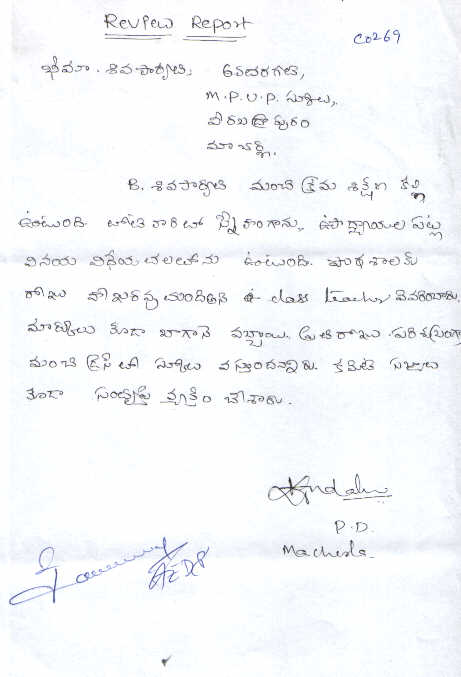 Review Report
C0269
భీమా. శివపార్వతి, 6వ తరగతి,
M.P.U.P. స్కూలు,
వీరభద్రాపురం
మాచర్ల.
B. శివపార్వతి మంచి క్రమ శిక్షణ కల్గి
ఉంటుంది. తోటి వారితో స్నేహంగాను, ఉపాధ్యాయుల పట్ల
వినయ విధేయతలతోను ఉంటుంది. పాఠశాలకు
రోజు హాజరవుతుందని class teacher వివరించారు.
మార్కులు కూడా బాగానే వచ్చాయి. ప్రతిరోజు పరిశుభ్రంగా
మంచి డ్రెస్ తో స్కూలు వస్తుందన్నారు. కమిటీ సభ్యులు
కూడా సంతృప్తి వ్యక్తం చేశారు.
P.D.
Macherla.